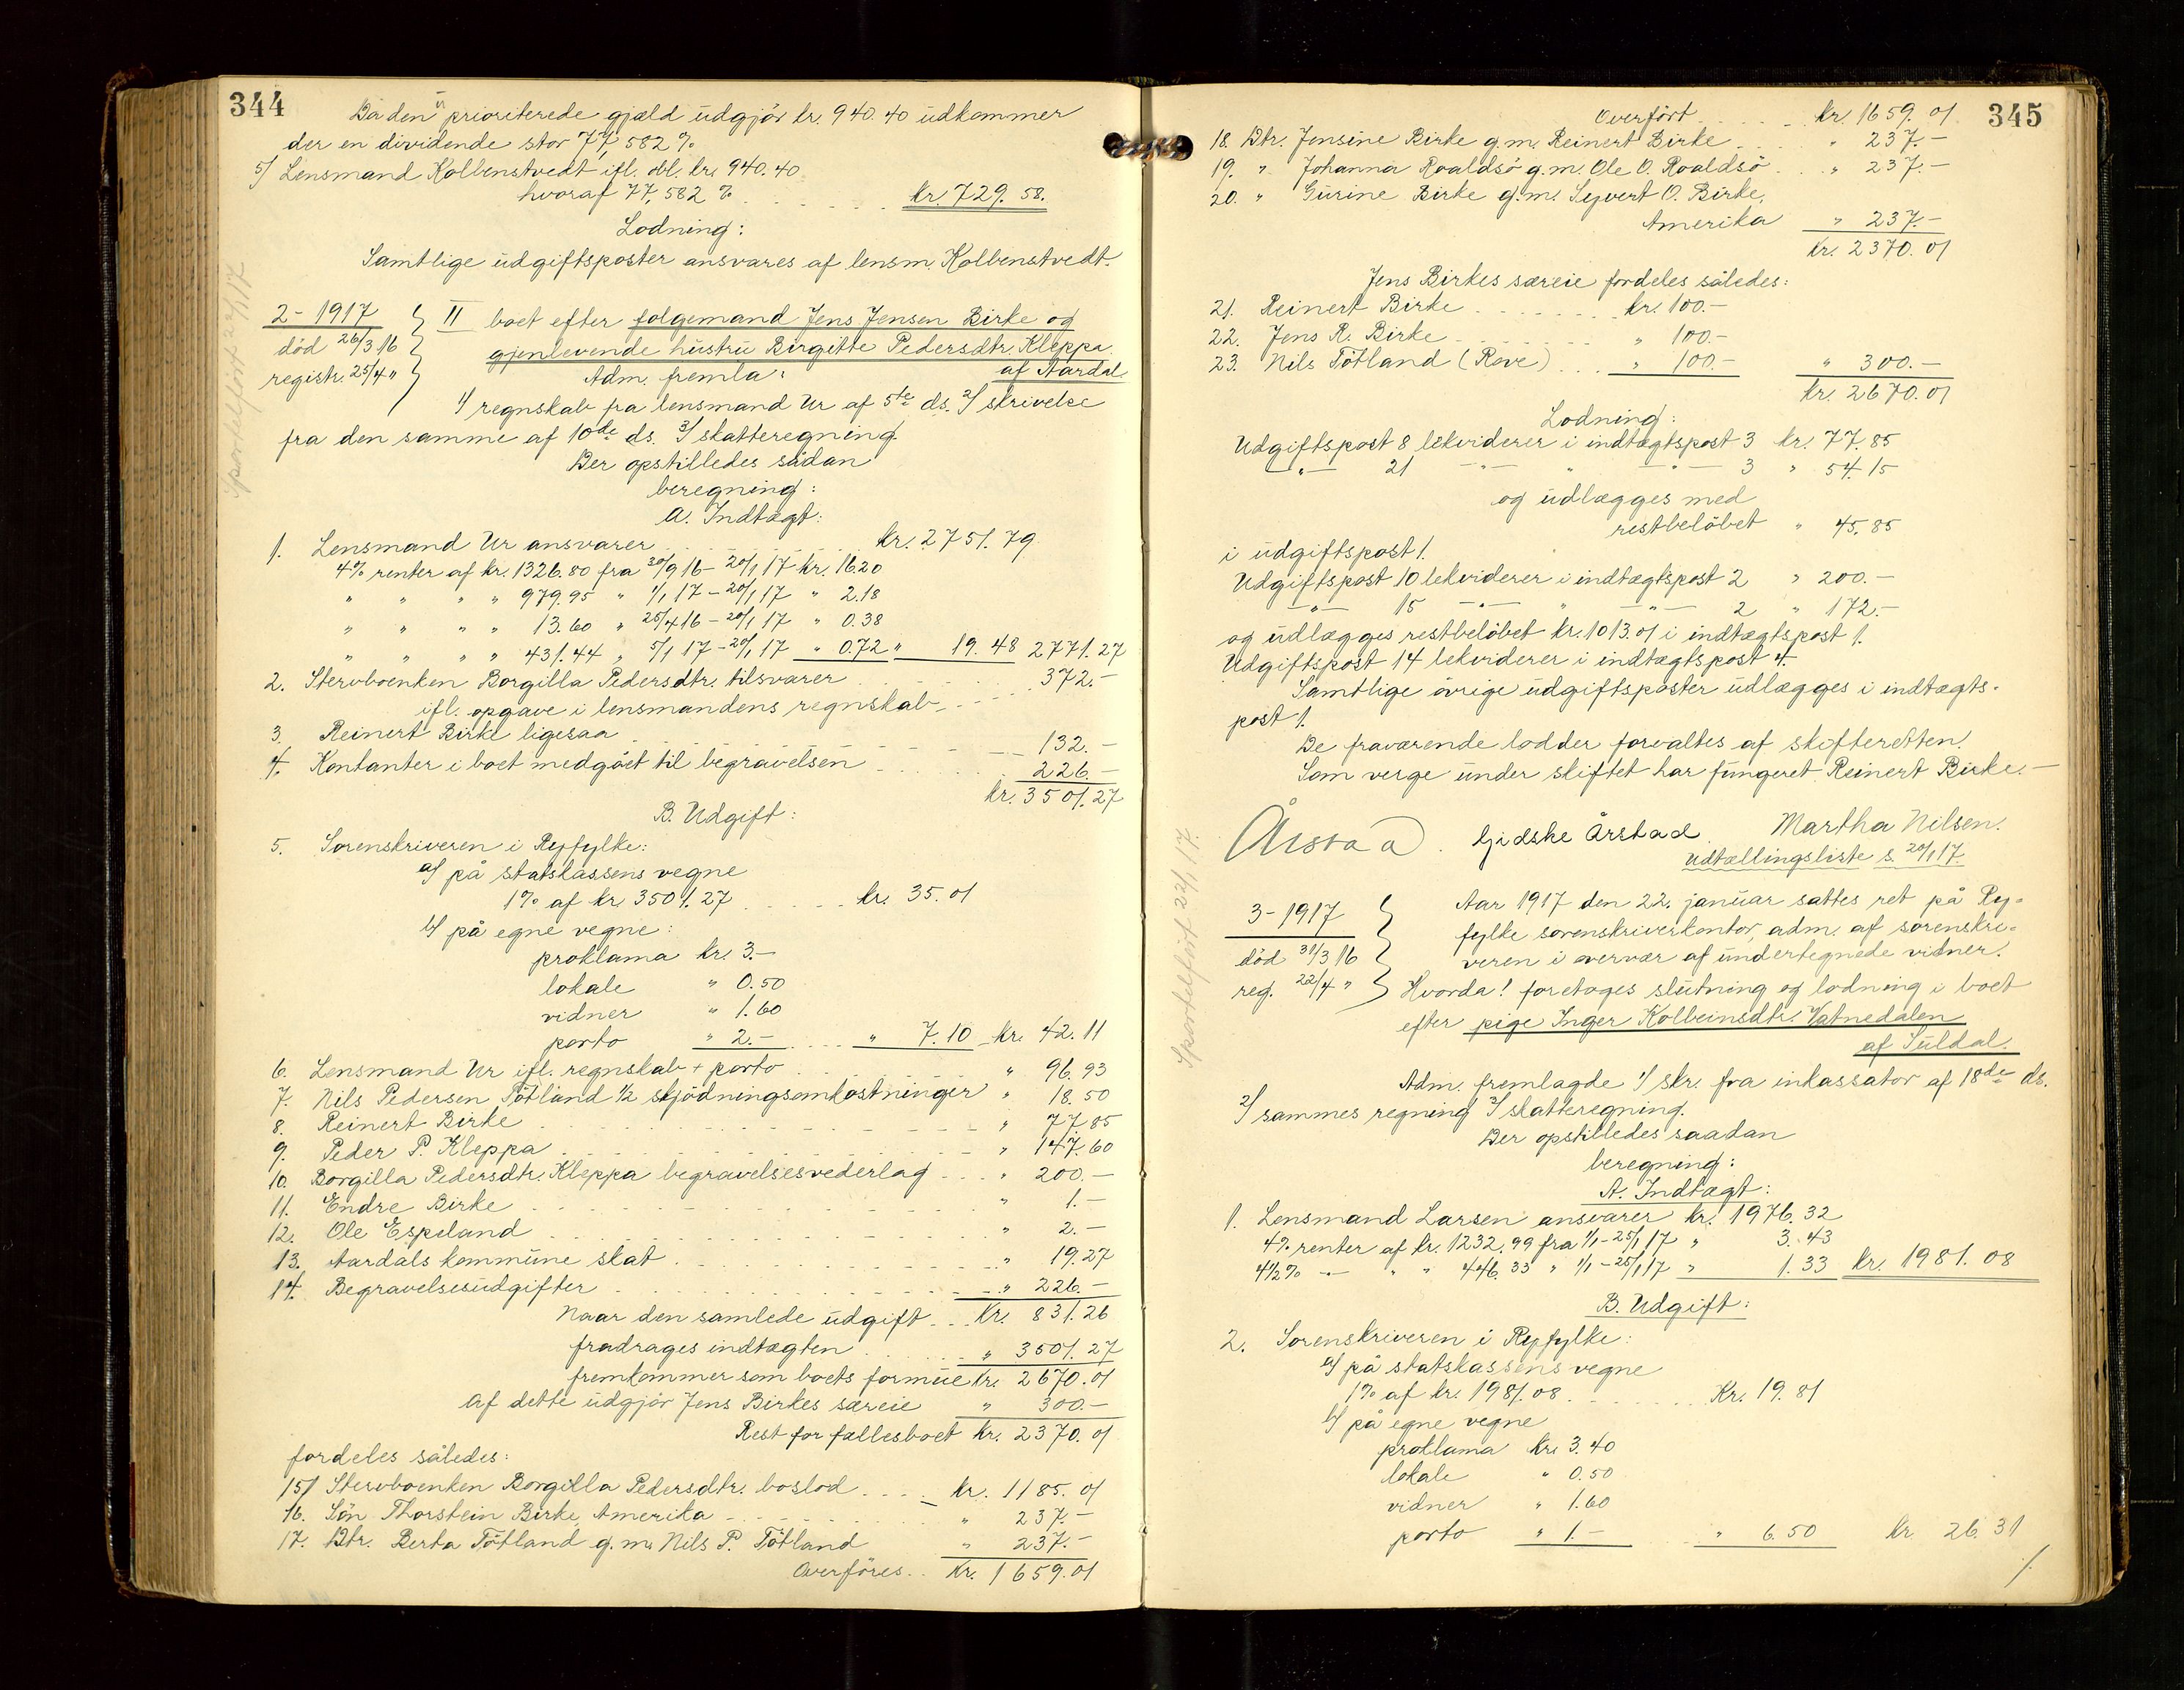 344
Da den u prioriterede gjæld udgjör kr. 940.40 udkommer
der en dividende stor 77,582 %
5/ Lensmand Kolbenstvedt ifl. obl. kr. 940.40
hvoraf 77,582 % . . . . . . kr. 729.58.
Lodning:
Samtlige udgiftsposter ansvares af lensm. Kolbenstvedt.
Sportelfört 22/1 17
2 - 1917
död 26/3 16
registr. 25/4 "
II boet efter folgemand Jens Jensen Birke og
gjenlevende hustru Birgitte Pedersdtr. Kleppa
af Aardal
Adm. fremla:
1/ regnskab fra lensmand Ur af 5te ds. 2/ skrivelse
fra den samme af 10de ds. 3/ skatteregning.
Der opstilledes sådan
beregning:
A. Indtægt:
1. Lensmand Ur ansvarer . . . kr. 2751.79
4% renter af kr. 1326.80 fra 30/9 16 - 20/1 17 kr. 16.20
" " " " 979.95 " 1/1 17 - 20/1 17 " 2.18
" " " " 13.60 " 25/4 16 - 20/1 17 " 0.38
" " " " 431.44 " 5/1 17 - 20/1 17 " 0.72 " 19.48 2771.27
2. Stervboenken Borgilla Pedersdtr. tilsvarer
ifl. opgave i lensmandens regnskab . . . 372.-
3. Reinert Birke ligesaa . . . 132.-
4. Kontanter i boet medgået til begravelsen . . . 226.-
kr. 3501.27
B. Udgift:
5. Sorenskriveren i Ryfylke:
a/ på statskassens vegne
1% af kr. 3501.27 . . . kr. 35.01
b/ på egne vegne:
proklama kr. 3.-
lokale " 0.50
vidner " 1.60
porto " 2.- . . . " 7.10 kr. 42.11
6. Lensmand Ur ifl. regnskab + porto . . . " 96.93
7. Nils Pedersen Tötland 1/2 skjödningsomkostninger " 18.50
8. Reinert Birke . . . " 77.85
9. Peder P. Kleppa . . . " 147.60
10. Borgilla Pedersdtr. Kleppa begravelsesvederlag . . . " 200.-
11. Endre Birke . . . " 1.-
12. Ole Espeland . . . " 2.-
13. Aardals kommune skat . . . " 19.27
14. Begravelsesudgifter . . . " 226.-
Naar den samlede udgift . . . Kr. 831.26
fradrages indtægten . . . " 3501.27
fremkommer som boets formue kr. 2670.01
Af dette udgjör Jens Birkes særeie " 300.-
Rest for fællesboet kr. 2370.01
fordeles således:
15/ Stervboenken Borgilla Pedersdtr. boslod . . . kr. 1185.01
16. Sön Thorstein Birke, Amerika . . . " 237.-
17. Dtr. Berta Tötland g. m. Nils P. Tötland " 237.-
Overföres . . Kr. 1659.01
345
Overfört . . . kr. 1659.01
18. Dtr. Jensine Birke g. m. Reinert Birke . . . " 237.-
19. " Johanna Roaldsö g. m. Ole O. Roaldsö . . . " 237.-
20. " Gurine Birke g. m. Syvert O. Birke,
Amerika " 237.-
Kr. 2370.01
Jens Birkes særeie fordeles således:
21. Reinert Birke . . . kr. 100.-
22. Jens R. Birke . . . " 100.-
23. Nils Tötland (Rove) . . . " 100.- " 300.-
kr. 2670.01
Lodning:
Udgiftspost 8 lekviderer i indtægtspost 3 kr. 77.85
- " - 21 - " - " - " - 3 " 54.15
og udlægges med
restbelöbet " 45.85
i udgiftspost 1.
Udgiftspost 10 lekviderer i indtægtspost 2 " 200.-
- " - 15 - " - " - " - 2 " 172.-
og udlægges restbelöbet kr. 1013.01 i indtægtspost 1.
Udgiftspost 14 lekviderer i indtægtspost 4.
Samtlige övrige udgiftsposter udlægges i indtægts-
post 1.
De fraværende lodder forvaltes af skifteretten.
Som verge under skiftet har fungeret Reinert Birke. -
Årstad. Gidske Årstad Martha Nilsen.
Udtællingsliste s. 20/1 17
Sportelfört 22/1 17.
3 - 1917
död 31/3 16
reg. 22/4 "
Aar 1917 den 22. januar sattes ret på Ry-
fylke sorenskriverkontor, adm. af sorenskri-
veren i overvær af undertegnede vidner.
Hvorda! foretoges slutning og lodning i boet
efter pige Inger Kolbeinsdtr. Vatnedalen
af Suldal.
Adm. fremlagde 1/ skr. fra inkassator af 18de ds.
2/ sammes regning 3/ skatteregning.
Der opstilledes saadan
beregning:
A. Indtægt:
1. Lensmand Larsen ansvarer kr. 1976.32
4% renter af kr. 1232.99 fra 1/1 - 25/1 17 " 3.43
4 1/2 % - " " 446.33 " 1/1 - 25/1 17 " 1.33 kr. 1981.08
B. Udgift:
2. Sorenskriveren i Ryfylke:
a/ på statskassens vegne
1% af kr. 1981.08 . . . Kr. 19.81
b/ på egne vegne
proklama kr. 3.40
lokale " 0.50
vidner " 1.60
porto " 1.- " 6.50 kr. 26.31
/.